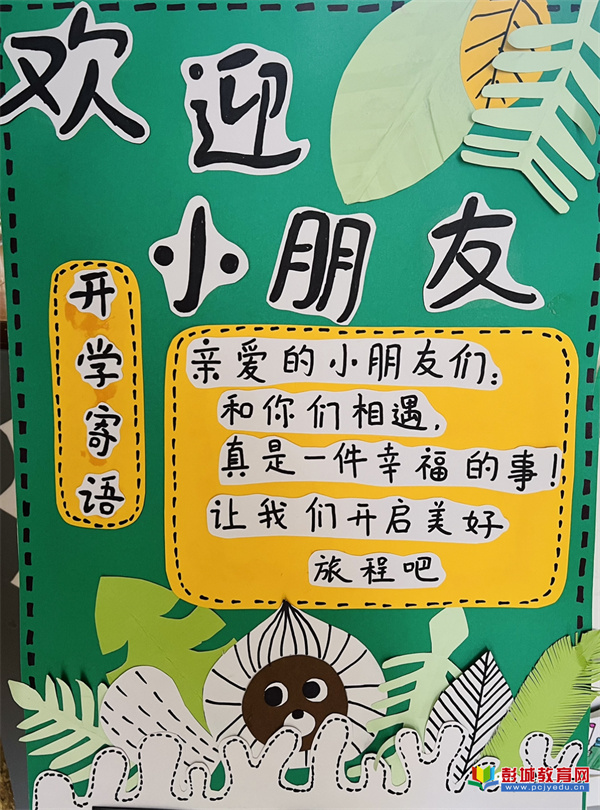 欢迎
小朋友
开学寄语
亲爱的小朋友们：
和你们相遇，
真是一件幸福的事！
让我们开启美好
旅程吧
彭城教育网
www.pcjyedu.cn